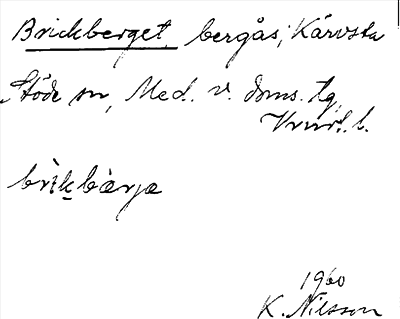 Brickberget, bergås, Kärvsta
Stöde sn, Med. v. doms. tg,
l.
brìkbærja
1960
K. Nilsson